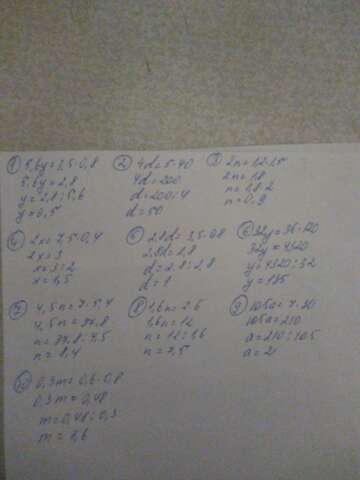 ① 5,6y=3,5·0,8
5,6y=2,8
y=2,8:5,6
y=0,5
② 4d=5·40
4d=200
d=200:4
d=50
③ 2n=12·1,5
2n=1,8
n=1,8:2
n=0,9
④ 2x=7,5·0,4
2x=3
x=3:2
x=1,5
⑤ 2,8d=3,5·0,8
2,8d=2,8
d=2,8:2,8
d=1
⑥ 32y=36·120
32y=4320
y=4320:32
y=135
⑦ 4,5n=7·5,4
4,5n=37,8
n=37,8:4,5
n=8,4
⑧ 1,6n=2·6
1,6n=12
n=12:1,6
n=7,5
⑨ 10,5a=7·30
10,5a=210
a=210:10,5
a=2
⑩ 0,3m=0,6·0,8
0,3m=0,48
m=0,48:0,3
m=1,6